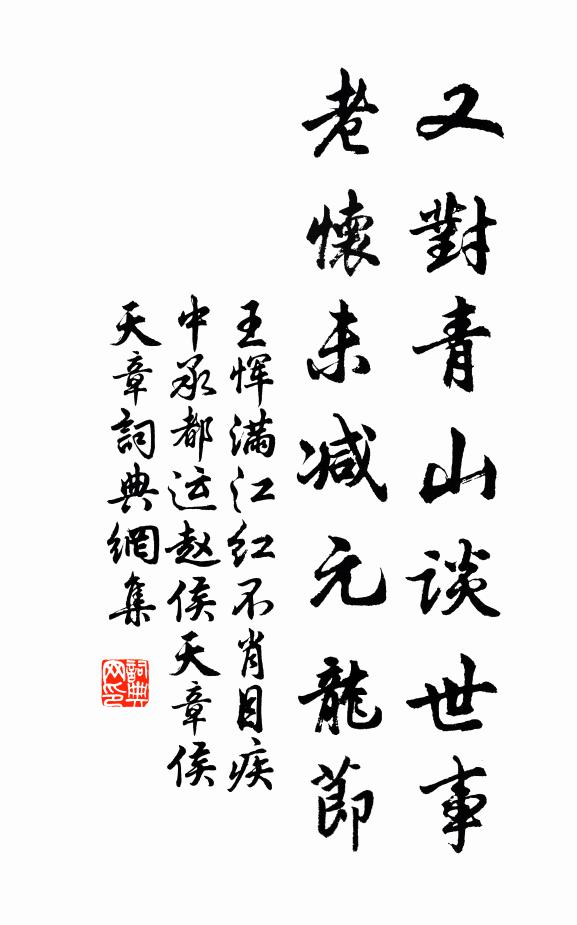 又對青山談世事
老懷未減元龍節
王恽满江红不肖目疾
中承都运赵侯天章侯
天章詞典網集
詞典网印